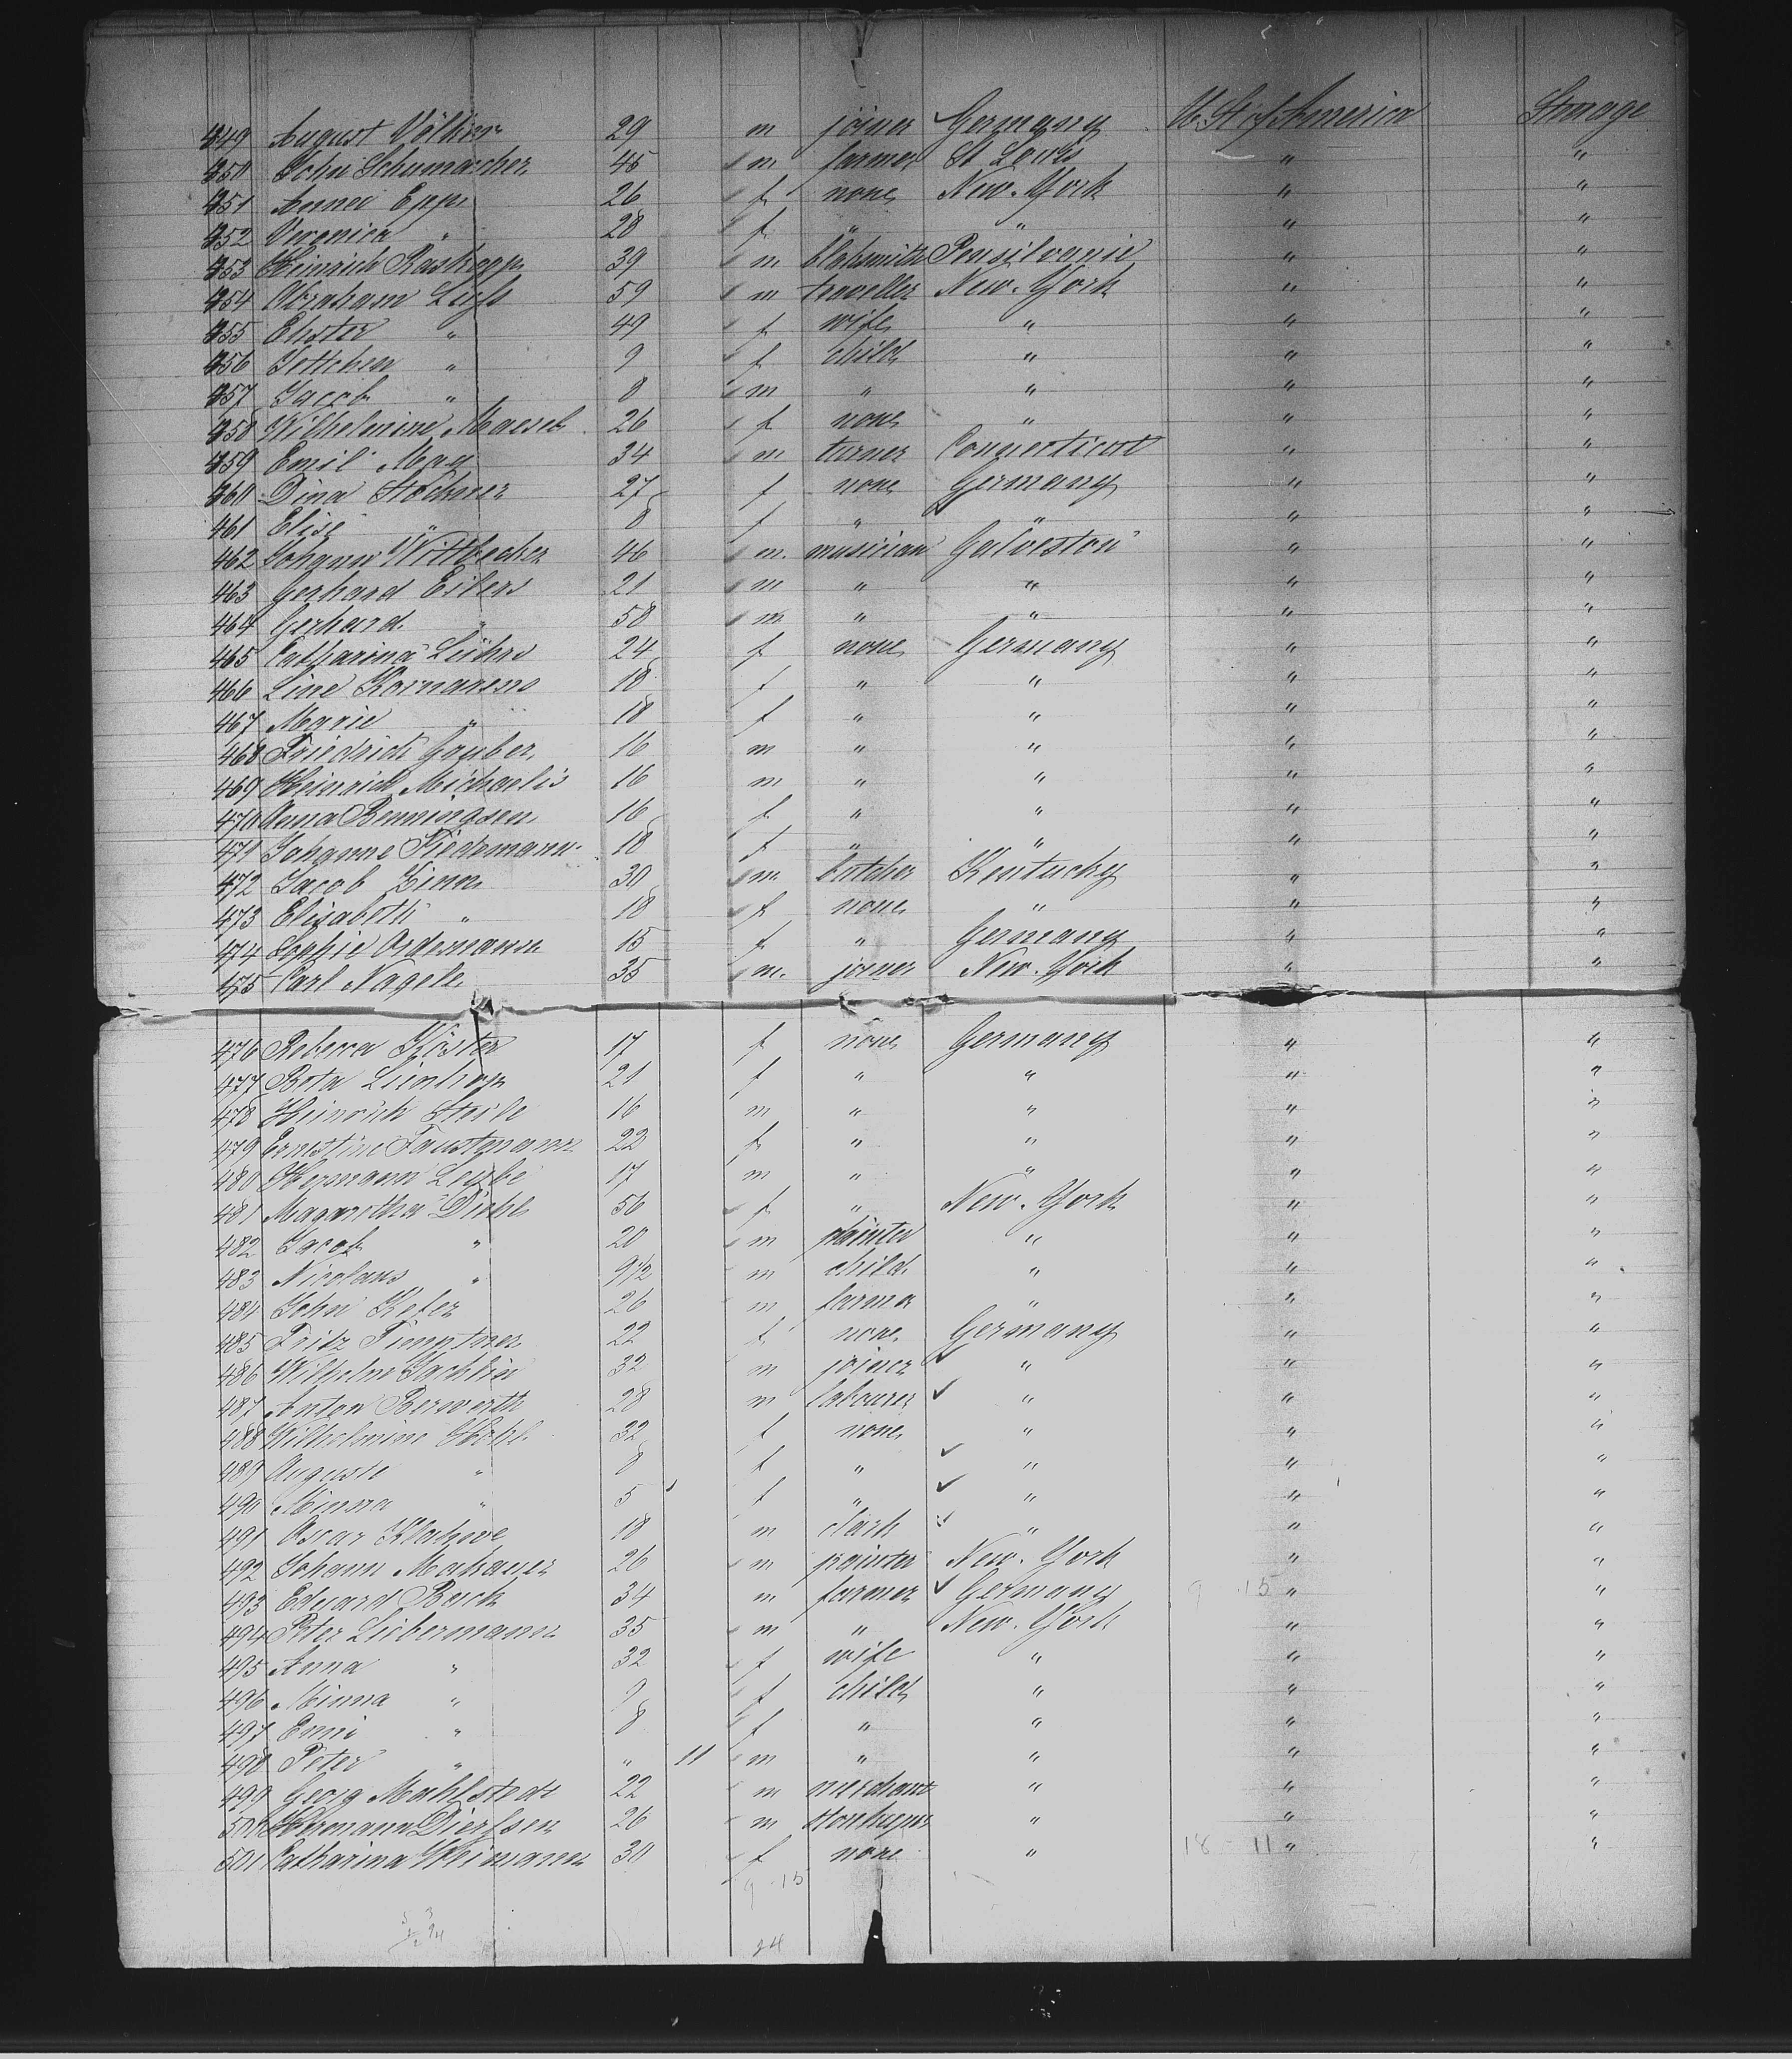 449 August Völker 29 m joiner Germany U. St. of America Steerage
450 John Schumacher 45 m farmer St Louis " "
451 Anna Epp 26 f none New-York " "
452 Veronica " 28 f " " " "
453 Heinrich Raskopp 39 m blaksmith Pensilvanie " "
454 Abraham 59 m traveller New-York " "
455 Ester " 49 f wife " " "
456 Jettchen " 9 f child " " "
457 Jacob " 8 m " " " "
458 Wilhelmine 26 f none " " "
459 Emil May 34 m turner Connecticut " "
460 Dina Stockner 27 f none Germany " "
461 Elise " 8 f " " " "
462 Johann Wittbecker 46 m. musician Galveston " "
463 Gerhard Eilers 21 m " " " "
464 Gerhard " 58 m " " " "
465 Catharina Lührs 24 f none Germany " "
466 Line Kornarens 18 f " " " "
467 Marie " 18 f " " " "
468 Friedrich Gruber 16 m " " " "
469 Heinrich Michaelis 16 m " " " "
470 Anna Benningsen 16 f " " " "
471 Johanne Tiedemann 18 f " " " "
472 Jacob Zinn 30 m butcher Kentucky " "
473 Elisabeth " 18 f none " " "
474 Sophie Ordemann 15 f " Germany " "
475 Carl Nagele 35 m. joiner New-York " "
476 Rebecca Köster 17 f none Germany " "
477 Beta 21 f " " " "
478 Heinrich Steile 16 m " " " "
479 Ernestine Faustmann 22 f " " " "
480 Hermann 17 m " " " "
481 Magaretha Diehl 56 f " New-York " "
482 Jacob " 20 m painter " " "
483 Nicolaus " 9 1/2 m child " " "
484 John Kefer 26 m farmer " " "
485 Fritz 22 f none Germany " "
486 Wilhelm 32 m joiner " " "
487 Anton Berwerth 28 m labourer " " "
488 Wilhelmine 32 f none " " "
489 Auguste " 8 f " " " "
490 Minna " 5 f " " " "
491 Oscar 18 m clark " " "
492 Johann 26 m painter New-York " "
493 Eduard Beick 34 m farmer Germany 9 15 " "
494 Peter Liebermann 35 m " New-York " "
495 Anna " 32 f wife " " "
496 Minna " 9 f child " " "
497 Emi " 8 f " " " "
498 Peter " " 11 m " " " "
499 Georg Mahlstedt 22 m merchant " " "
500 Hermann Dierksen 26 m " " "
501 Catharina Weimann 30 f none " 18 - 11 " "
9.15
24